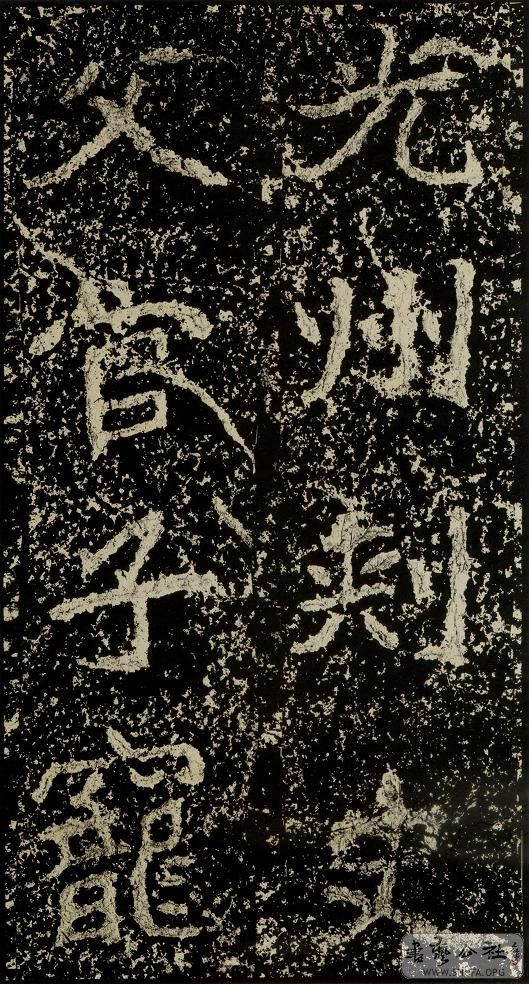 光州刾史
父官子寵
書藝公社
WWW.SHUFA.ORG